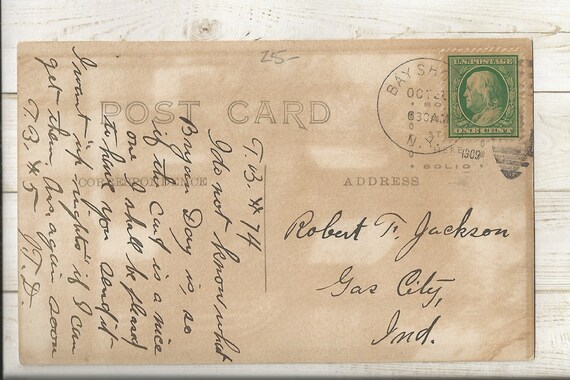 25-
POST CARD
CORRESPONDENCE
ADDRESS
U.S. POSTAGE
ONE CENT
BAY SH
OCT
630 A.M
N.Y.
1909
SOLIO
T. B. # 74
I do not know what
Bryan Day is, so
if the card is a nice
one I shall be pleased
to have you send it
I want "up nights" if I can
get them. Ans. again soon
T. B. # 5 J. T. D.
Robert F. Jackson
Gas City,
Ind.